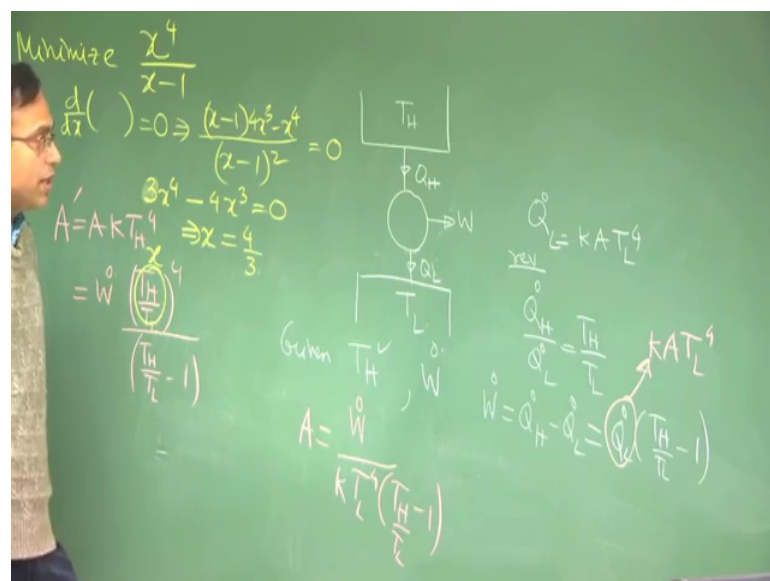 Minimize x⁴/(x-1)
d/dx ( ) = 0 ⇒ ((x-1)4x³ - x⁴)/(x-1)² = 0
3x⁴ - 4x³ = 0
⇒ x = 4/3
A' = A K T_H⁴
x
= Ẇ (T_H/T_L)⁴/(T_H/T_L - 1)
T_H
Q_H
W
Q_L
T_L
Given T_H ✓, Ẇ
A = Ẇ/(K T_L⁴ (T_H/T_L - 1))
Q̇_L = K A T_L⁴
rev
Q̇_H/Q̇_L = T_H/T_L
KAT_L⁴
Ẇ = Q̇_H - Q̇_L = Q̇_L (T_H/T_L - 1)